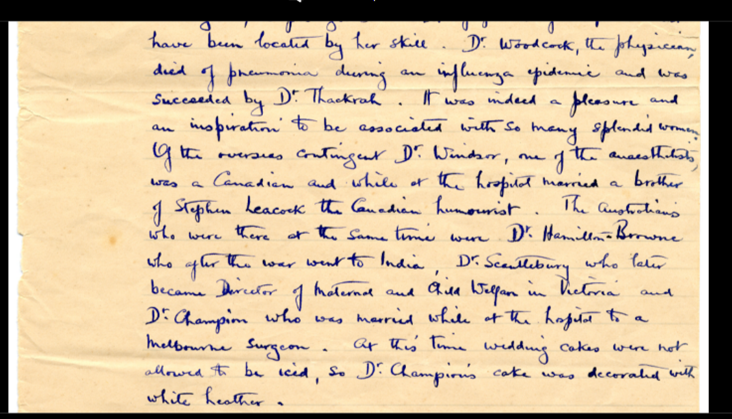 have been located by her skill. Dr Woodcock, the physician,
died of pneumonia during an influenza epidemic and was
succeeded by Dr Thackrah. It was indeed a pleasure and
an inspiration to be associated with so many splendid women.
Of the overseas contingent Dr Windsor, one of the anaesthetists,
was a Canadian and while at the hospital married a brother
of Stephen Leacock the Canadian humourist. The Australians
who were there at the same time were Dr Hamilton-Browne
who after the war went to India, Dr Scantlebury who later
became Director of Maternal and Child Welfare in Victoria and
Dr Champion who was married while at the hospital to a
Melbourne surgeon. At this time wedding cakes were not
allowed to be iced, so Dr Champion's cake was decorated with
white heather.